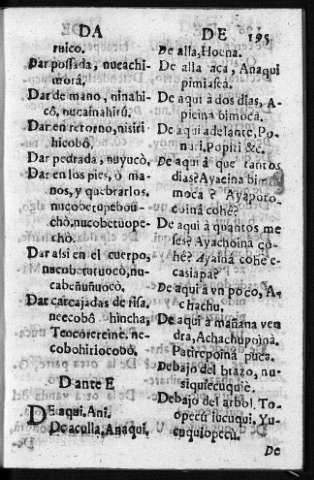 DA
ruico.
Dar possada, nueachi-
mora.
Dar de mano, ninahi-
cô, nucainahirù.
Dar en retorno, nisiri
hicobô.
Dar pedrada, nuyucò.
Dar en los pies, ò ma-
nos, y quebrarlos.
nucobetupebou-
chò, nucobetuope-
chò.
Dar assi en el cuerpo,
nucobetutuocò, nu-
cabeñuñuocò.
Dar carcajadas de risa.
neecobô hincha,
Teocorereine. ne-
cobohiriocobô.
D ante E
DE aqui. Ani.
De aculla, Anaqui.
DE 195
De alla, Hoena.
De alla aca, Anaqui
pimiasca.
De aqui à dos dias, A-
picina bimoca.
De aqui adelante, Po-
nuri. Popiri &c.
De aqui à que tantos
dias? Ayacina bi-
moca? Ayaporo-
coina cohè?
De aqui à quantos me
ses? Ayachoina co-
hè? Ayaiña cohe e-
casiapa?
De aqui à vn poco, A-
chachu.
De aqui à mañana ven
drà, Achachupoina.
Patirepoina puca.
Debajo del brazo, nu-
siquiecuquie.
Debajo del arbol. To-
opecu iucuqui, Yu-
cuquiopecu.
De